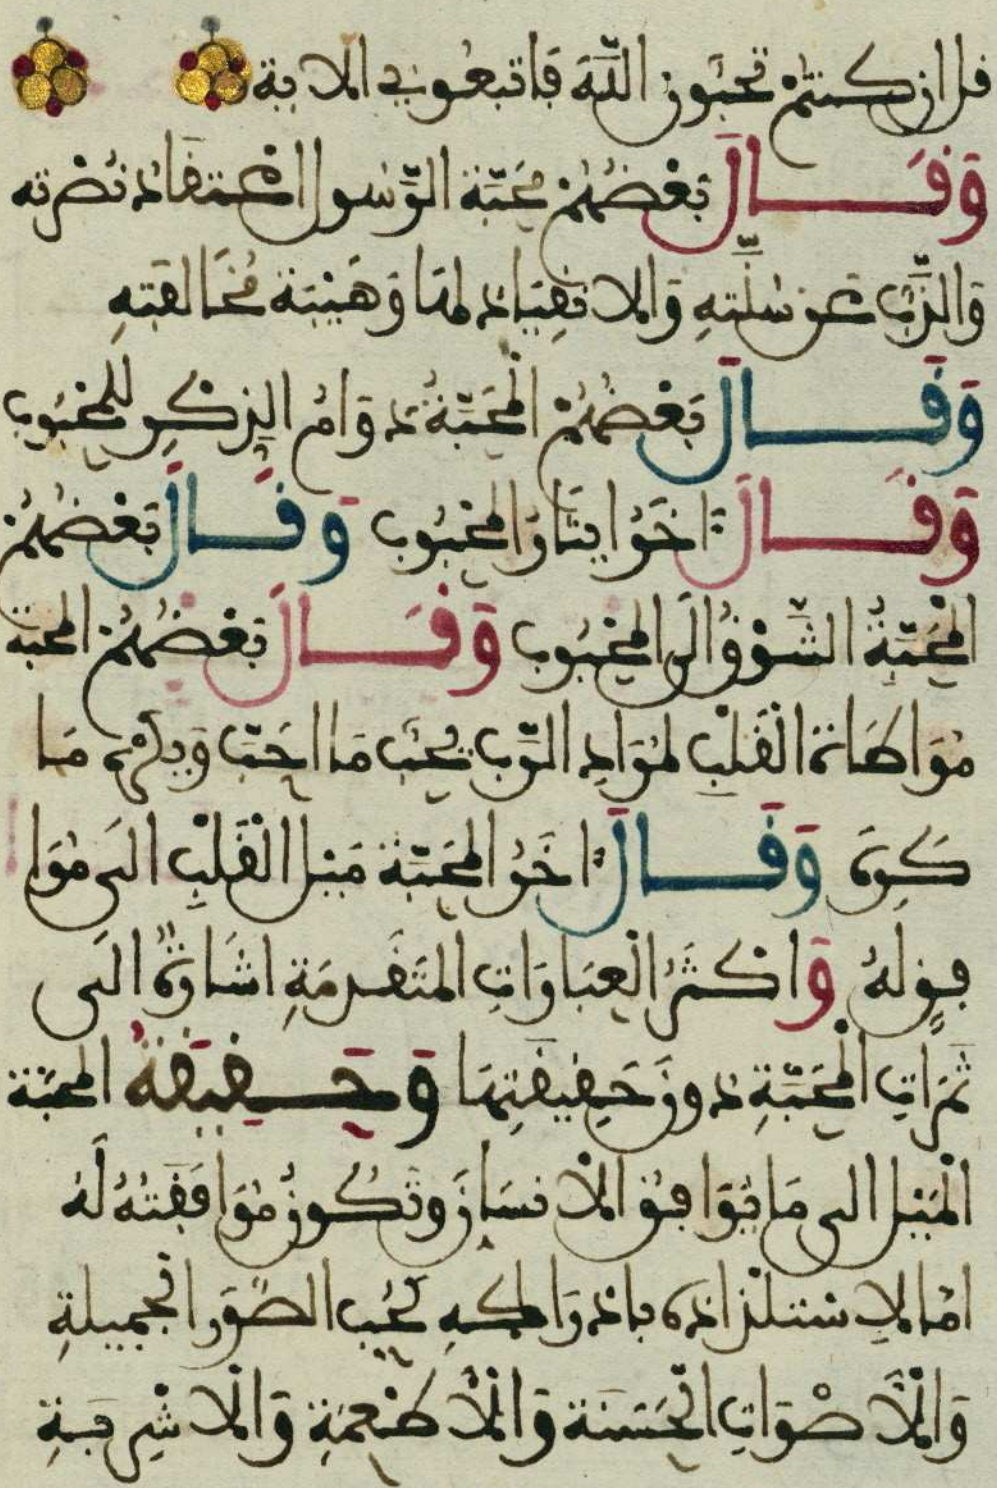 قل ان كنتم تحبون الله فاتبعوني الاية
وَقَالَ بَعْضُهُمْ مَحَبَّة الرَّسُول اعتقاد نُصْرته
وَالذَّبُّ عن سُنَّتِهِ وَالانقِيَاد لهَا وَهَيْبَة مُخَالفَتِهِ
وَقَالَ بَعْضُهُمْ الْمَحَبَّةُ دَوَامُ الذِّكْرِ لِلْمَحْبُوبِ
وَقَالَ ءاخَرُ ايثَارُ الْمَحْبُوبِ وَقَالَ بَعْضُهُمْ
الْمَحَبَّةُ الشَّوْقُ الَى الْمَحْبُوبِ وَقَالَ بَعْضُهُمْ المحبة
مُوَاطَاةُ الْقَلْبِ لِمُرَادِ الرَّبِّ يُحِبُّ مَا احَبَّ وَيَكْرَهُ مَا
كَرِهَ وَقَالَ ءاخَرُ الْمَحَبَّة مَيْل الْقَلْبِ الَى مُوَا
فِقٍ لَهُ وَاكْثَرُ الْعِبَارَاتِ المُتَقَدِّمَةِ اشَارَةٌ الَى
ثَمَرَاتِ الْمَحَبَّةِ دُونَ حَقِيقَتِهَا وَحَقِيقَةُ المحَبَّة
الْمَيْل الى مَا يُوَافِقُ الْانسَانَ وَتَكُونُ مُوَافَقَتُهُ لَهُ
امَّا لِاسْتِلْذَاذِهِ بِادْرَاكِهِ كَحُبِّ الصُّوَرِ الْجَمِيلَةِ
وَالْأَصْوَاتِ الْحَسَنَة وَالْأَطْعِمَةِ وَالْاشْرِبَةِ